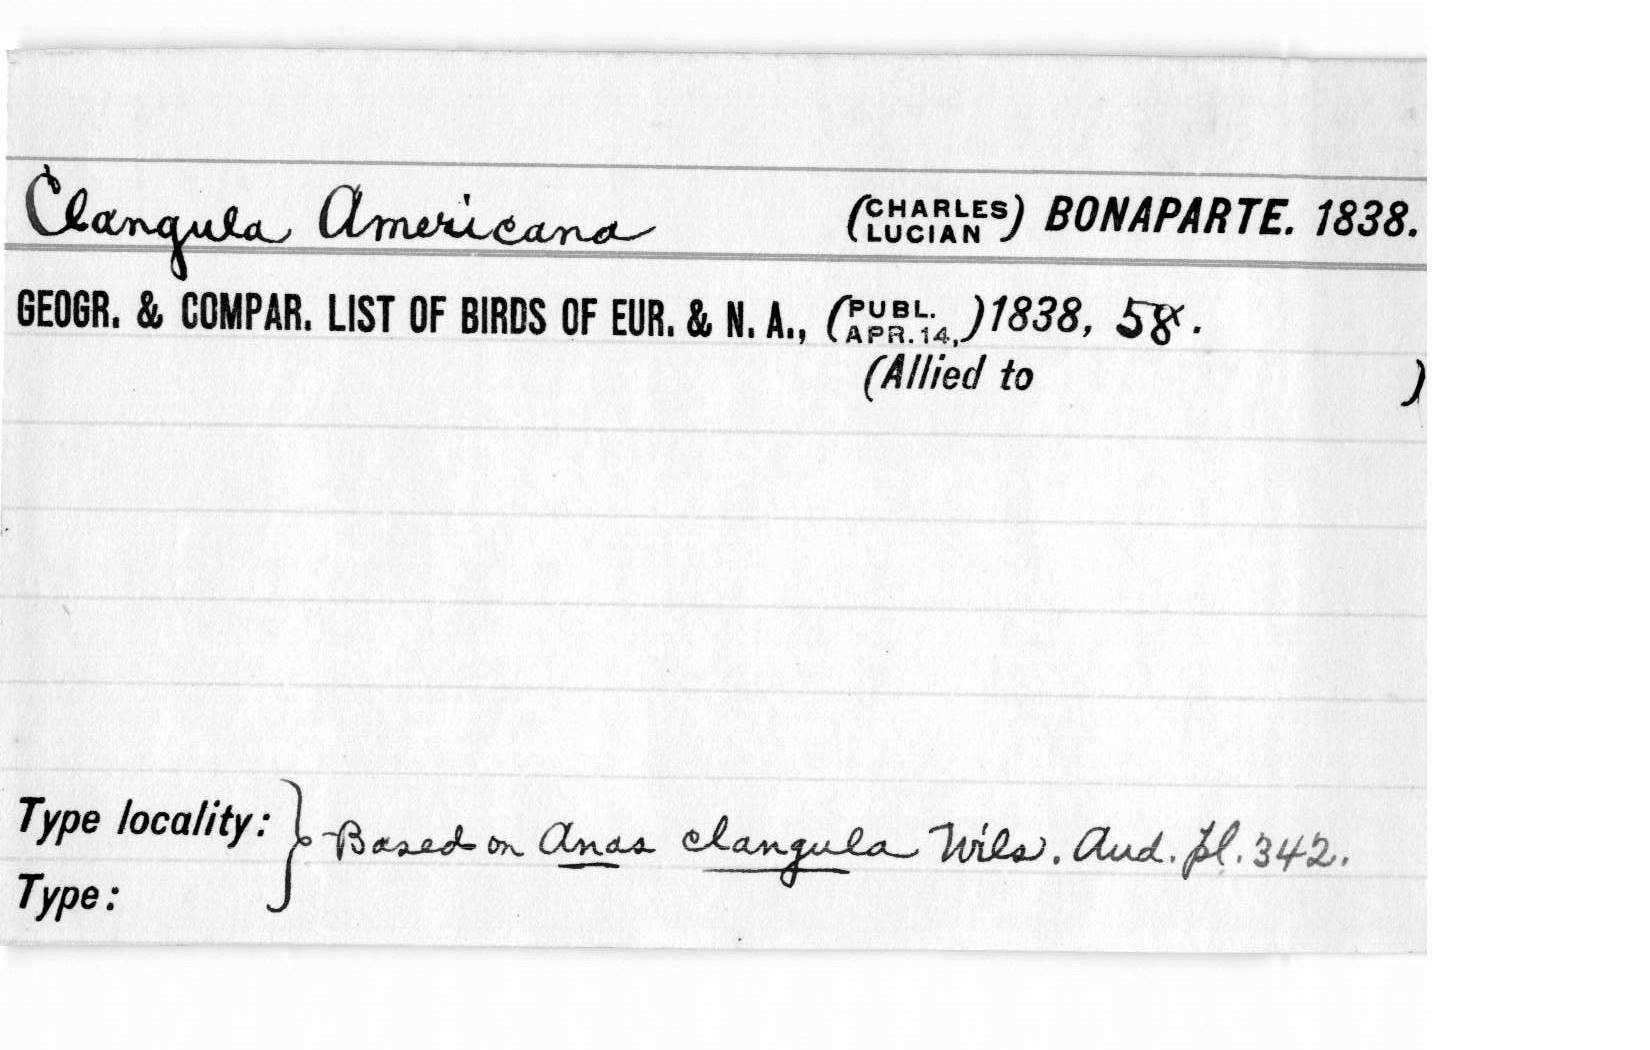 Clangula Americana (CHARLES LUCIAN) BONAPARTE. 1838.
GEOGR. & COMPAR. LIST OF BIRDS OF EUR. & N. A., (PUBL. APR. 14,) 1838, 58.
(Allied to )
Type locality: } Based on Anas clangula Wils. Aud. pl. 342.
Type: